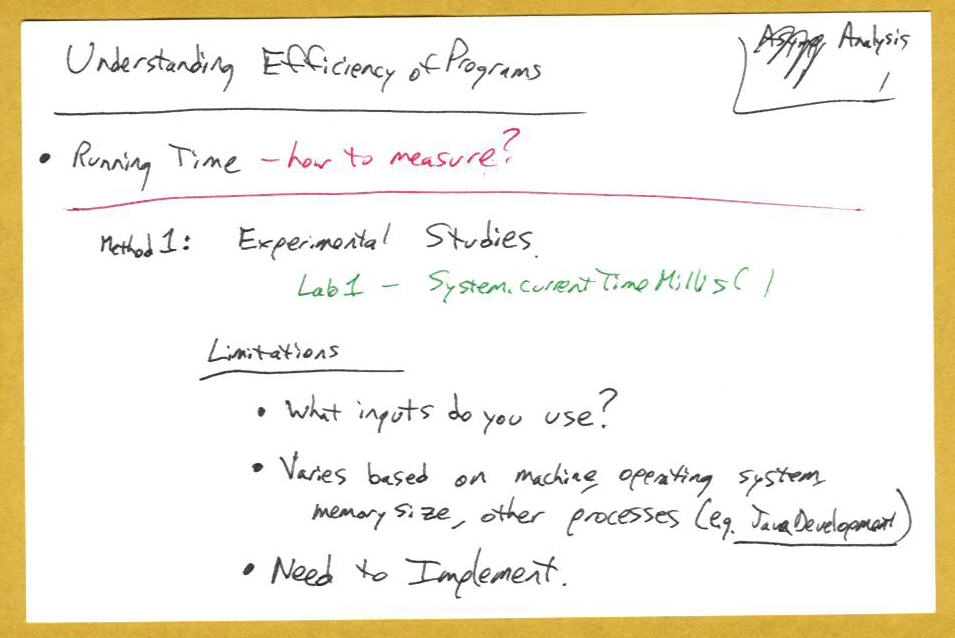 Understanding Efficiency of Programs
Analysis
1
• Running Time - how to measure?
Method 1: Experimental Studies.
Lab 1 - System.currentTimeMillis( )
Limitations
• What inputs do you use?
• Varies based on machine, operating system,
memory size, other processes (e.g. Java Development)
• Need to Implement.